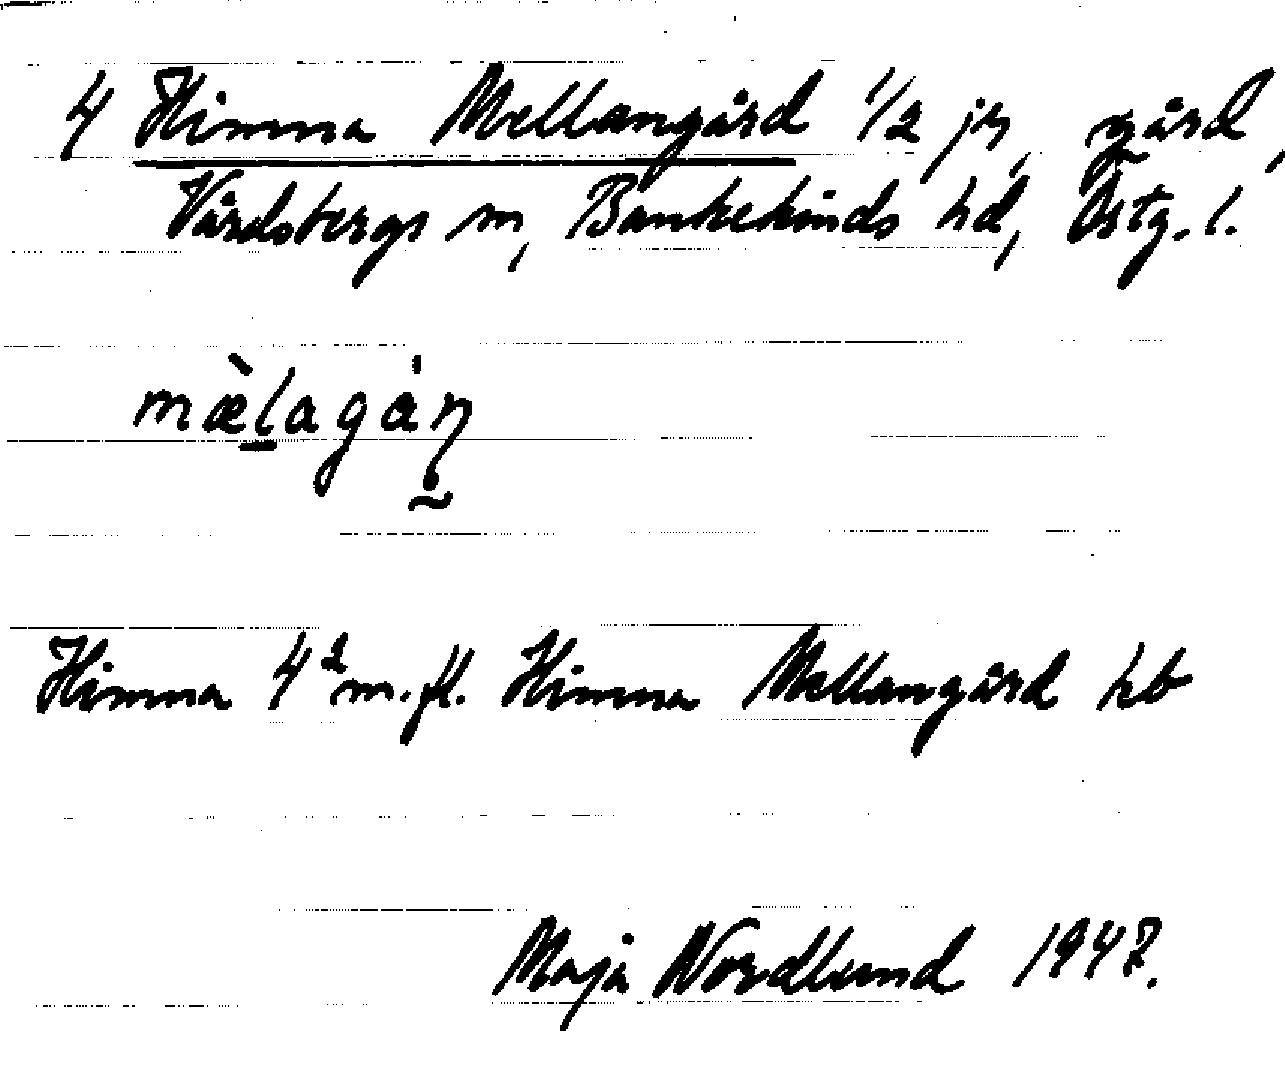 4 Himna Mellangård 1/2 jr, gård,
Vårdsbergs sn, Bankekinds hd, Östg. l.
mæ̀lagȧṇ
Himna 4² m. fl. Himna Mellangård hb
Maja Nordlund 1947.